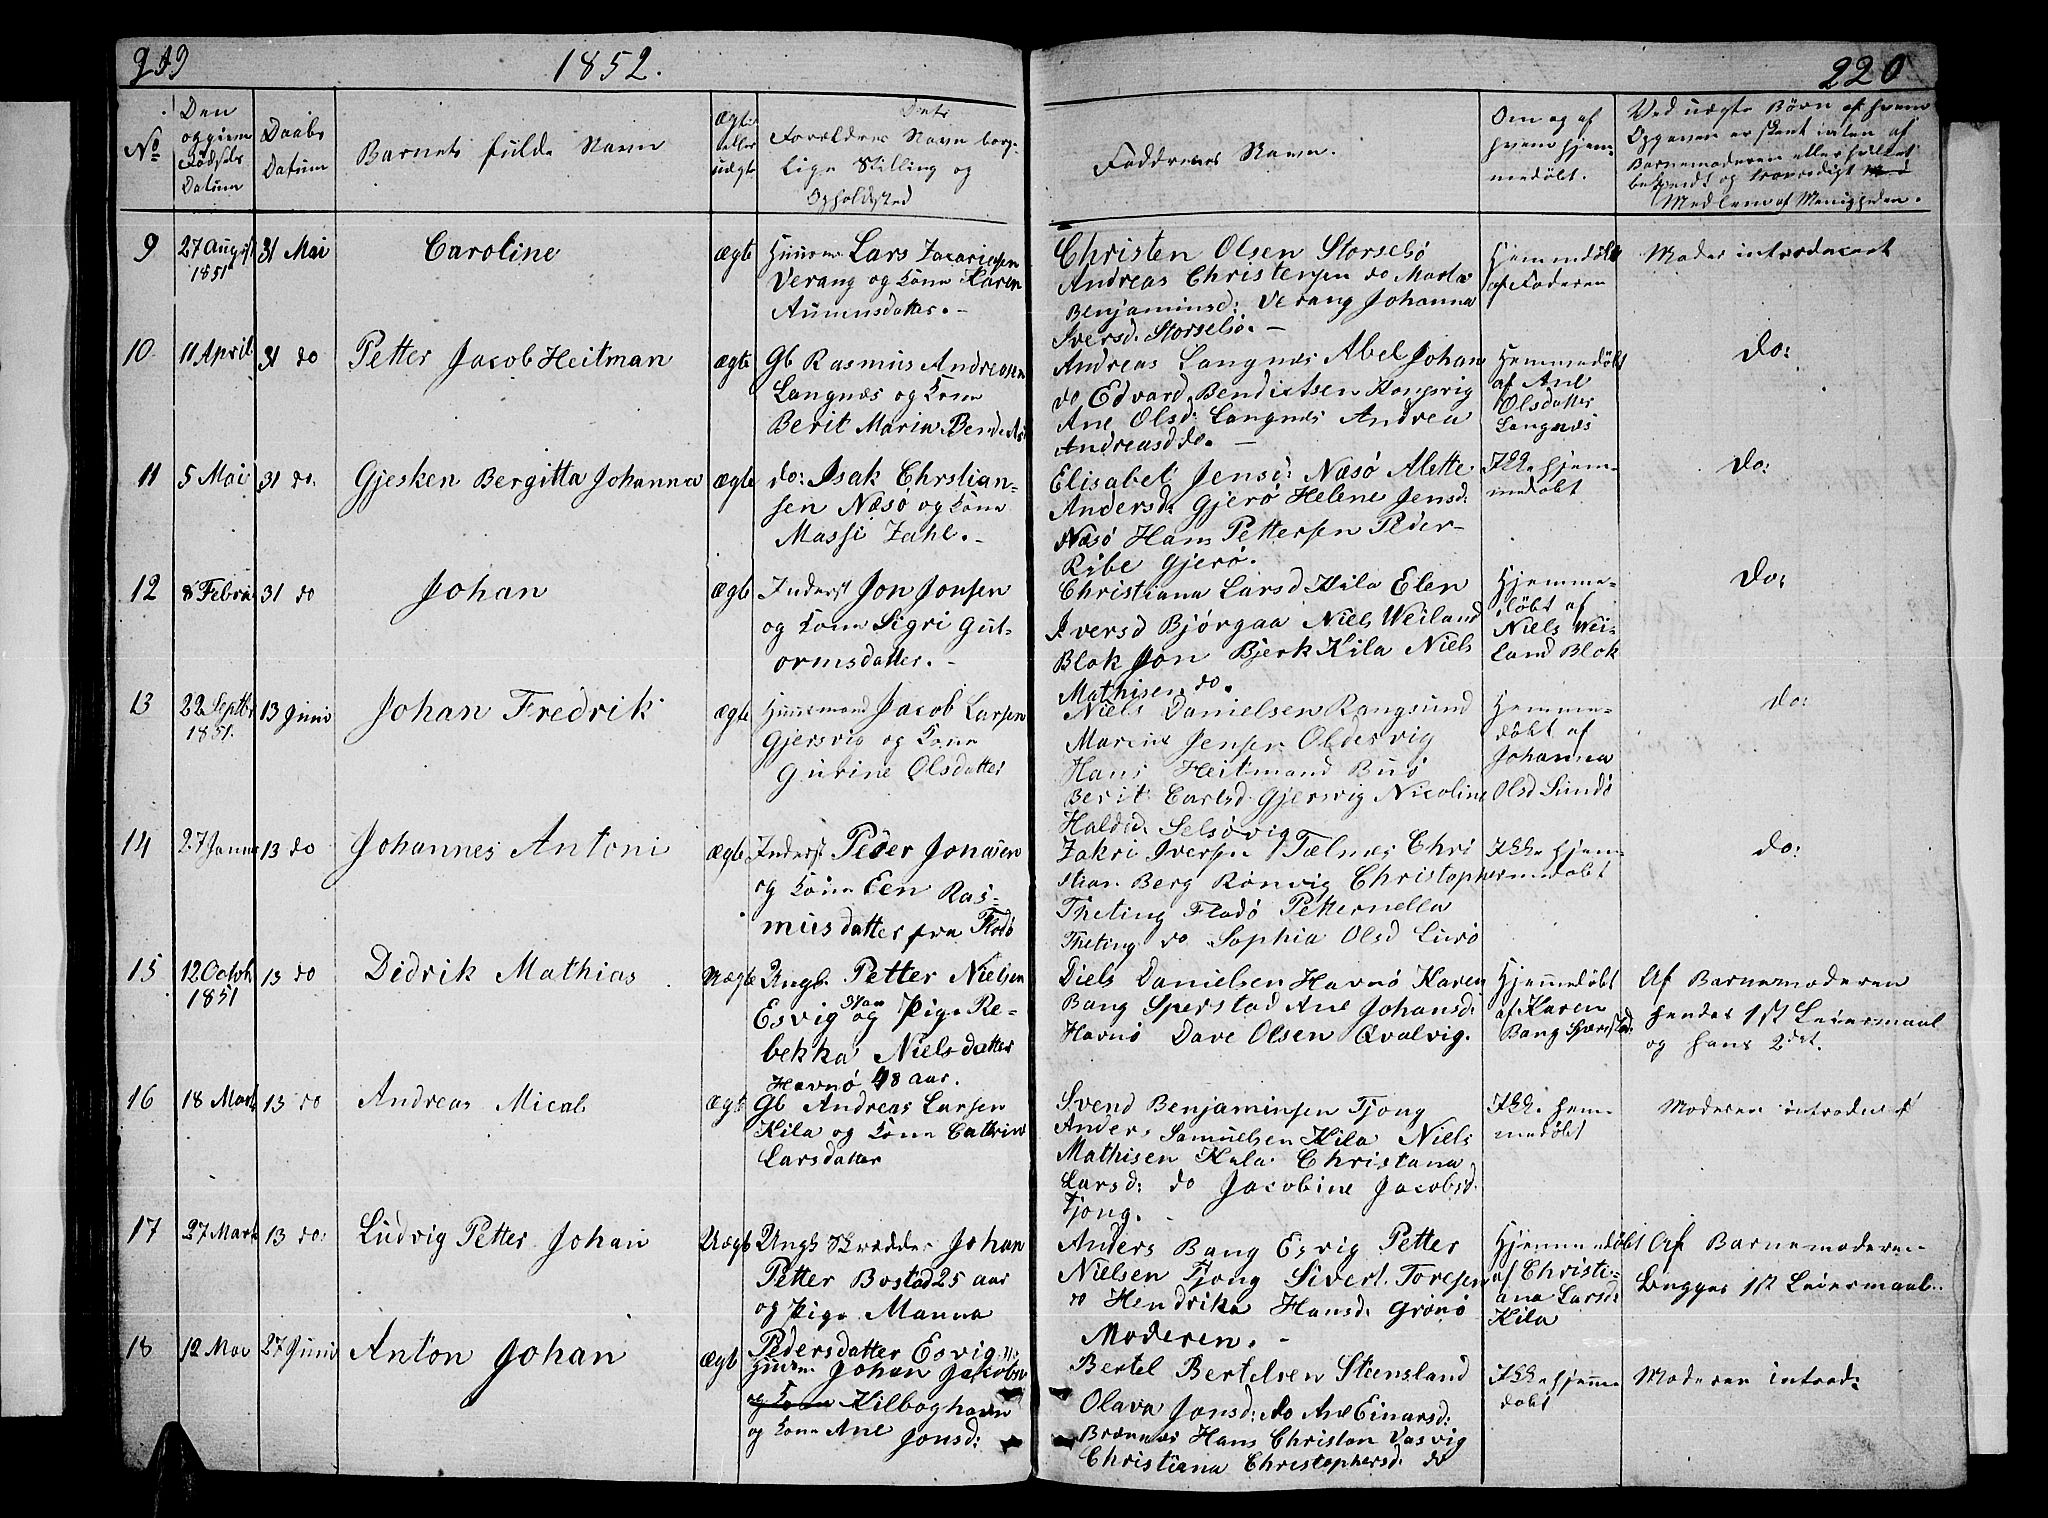 219
1852.
220
No
Den opgivne Fødsels Datum
Daabs Datum
Barnets fulde Navn
Ægte eller uægte
Dets Forældres Navn borgerlige Stilling og Opholdsted
Faddrenes Navn.
Om og af hvem hjemmedøbt.
Ved uægte Børn af hvem Opgaven er skeet
Barnemoderen eller hvilket
bekjendt og troværdigt
Medlem af Menigheden.
9
27 August
1851
31 Mai
Caroline
ægte
Lars Zacariasen
Verang og Kone Karen
Christen Olsen Storselsø
Andreas Christensen do Marta
Benjaminsd: Verang Johanna
Iversd. Storselsø. –
Hjemmedøbt
af Faderen
Moder introduceret
10
11 April
31 do
Petter Jacob Heitman
ægte
Gb Rasmus Andreasen
Langnæs og Kone
Berit Maria
Andreas Langnæs Abel Johan
do Edvard Bendixtsen Kongsvig
Ane Olsd: Langnæs Andrea
Andreasd do. –
Hemmedøbt
af Ane
Olsdatter
Langnæs
do:
11
5 Mai
31 do.
Gjesken Bergitta Johanna
ægte
do: Isak Chrstian-
sen Næsø og Kone
Massi Zahl. –
Elisabet Jensd: Næsø Alette
Andersd: Gjerø Helene Jensd:
Næsø Hans Pettersen Peder
Ribe Gjerø.
Ikke hjem-
medøbt
do:
12
8 Febru
31 do
Johan
ægte
Inderst Jon Jonsen
og Kone Sigri Gut-
ormsdatter. –
Christiana Larsd Kila Elen
Iversd Bjørgaa Niels Weiland
Blok Jon Bjerk Kila Niels
Mathisen do.
Hjemme-
døbt af
Niels Wei-
land Blok
do:
13
22 Septbr
1851.
13 Juni
Johan Fredrik
ægte
Huusmand Jacob Larsen
Gjersvig og Kone
Gurine Olsdatter
Niels Danielsen Rangsund
Marine Jensen Oldervig
Hans Heitmand Busø
Berit Carlsd. Gjersvig Nicoline
Haldsd. Selsøvig
Hemme-
døbt af
Johanna
Olsd Sundø
do:
14
27 Janua
13 do
Johannes Antoni
ægte
Inderst Peder Jonasen
og Kone Een Ras-
musdatter fra Flodø
Zakri Iversen Tælnæs Chri
stian Berg Rønvig Christopher
Theting Flodø Petternella
Theting do Sophia Olsd Lurø
Ikke hjem-
medøbt
do:
15
12 Octob
1851
13 do
Didrik Mathias
Uægte
Ungk. Petter Nielsen
Esvig og Pige Re-
bekka Nielsdatter
Havnø 48 aar.
Diels Danielsen Havnø Karen
Bang Sperstad Ane Johansd:
Havnø Dave Olsen Qvalvig.
Hjemmedøbt
af Karen
Bang Sperstad:
Af Barnemoderen
hendes 1st Leiermaal
og hans 2det.
16
18 Mart
13 do
Andreas Mical
ægte
Gb Andreas Larsen
Kila og Kone Cathrine
Larsdatter
Svend Benjaminsen Tjong
Anders Samuelsen Kila Niels
Mathisen Kila Christana
Larsd: do Jacobine Jacobsd.
Tjong.
Ikke hem-
medøbt
Moderen introduset
17
27 Mart
13 do:
Ludvig Petter Johan
Uægt
Ungk Skrædder Johan
Petter Bostad 25 aar
og Pige Manna
Pedersdatter Esvig
Anders Bang Esvig Petter
Nielsen Tjong Sivert Toresen
do Hendrike Hansd: Grønø
Moderen. –
Hjemmedøbt
af Christi-
ana Larsd:
Kila
Af Barnemoderen
Begges 1st Leiermaal.
18
12 Mai
27 Juni
Anton Johan
ægt
Johan Jakobsen
og Kone Kilboghavn
og Kone Ane
Jonsd:
Bertel Bertelsen Steensland
Olava Jonsd: do Ane Einarsd:
Brænnæs Hans Christon Vasvig
Christiana Christophersd: do
Ikke hjemme
døbt
Moderen introd: